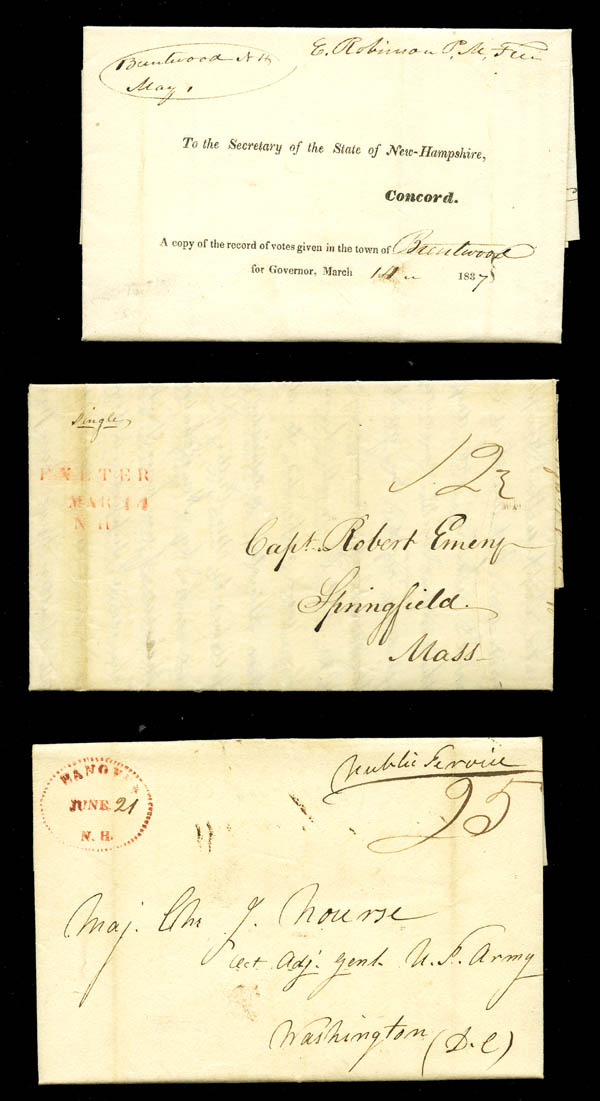 Brentwood N H
May 1
E. Robinson P. M. Free
To the Secretary of the State of New-Hampshire,
Concord.
A copy of the record of votes given in the town of Brentwood
for Governor, March 14 1837
Single
EXETER
MAR 14
N H
12½
Capt. Robert Emery
Springfield.
Mass
HANOVER
JUNE 21
N. H.
Public Service
25
Maj. Chs J. Nourse
Act Adj. Genl. U. S. Army
Washington (D. C)